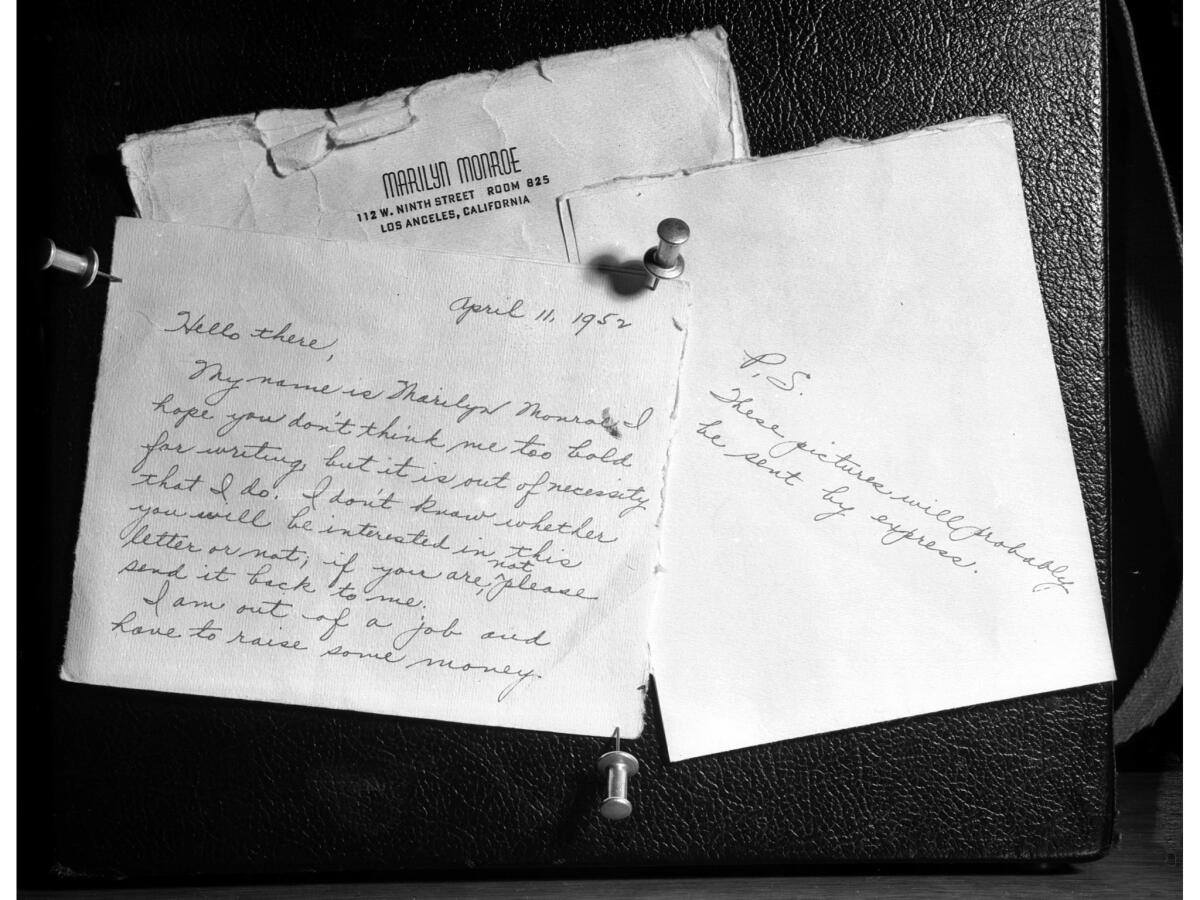 MARILYN MONROE
112 W. NINTH STREET ROOM 825
LOS ANGELES, CALIFORNIA
April 11, 1952
Hello there,
My name is Marilyn Monroe, I
hope you don't think me too bold
for writing, but it is out of necessity
that I do. I don't know whether
you will be interested in this
letter or not; if you are, not please
send it back to me.
I am out of a job and
have to raise some money.
P.S.
These pictures will probably
be sent by express.